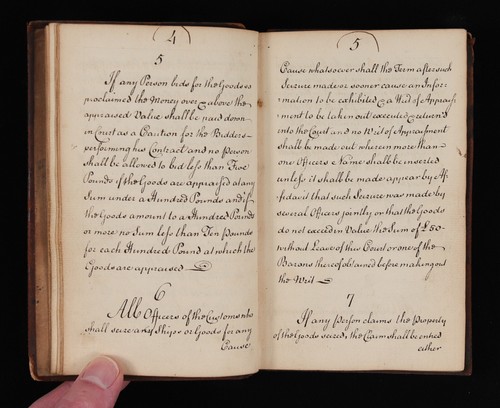 4
5
If any Person bids for the Goods so
proclaimed the Money over & above the
appraised Value shall be paid down
in Court as a Caution for the Bidders
performing his Contract and no Person
shall be allowed to bid less than Five
Pounds if the Goods are appraised at any
Sum under a Hundred Pounds and if
the Goods amount to a Hundred Pounds
or more no Sum less than Ten pounds
for each Hundred Pound at which the
Goods are appraised
6
All Officers of the Customs who
shall seize any Ships or Goods for any
Cause
5
Cause whatsoever shall the Term after such
Seizure made or sooner cause an Infor=
mation to be exhibited & a Writ of Appraism
ent to be taken out executed & return'd
into the Court and no Writ of Appraisment
shall be made out wherein more than
one Officers Name shall be inserted
unless it shall be made appear by Af
fidavit that such Seizure was made by
several Officers jointly or that the Goods
do not exceed in Value the Sum of £50
without Leave of this Court or one of the
Barons thereof obtained before making out
the Writ
7
If any person claims the Property
of the Goods seized, the Claim shall be entred
either